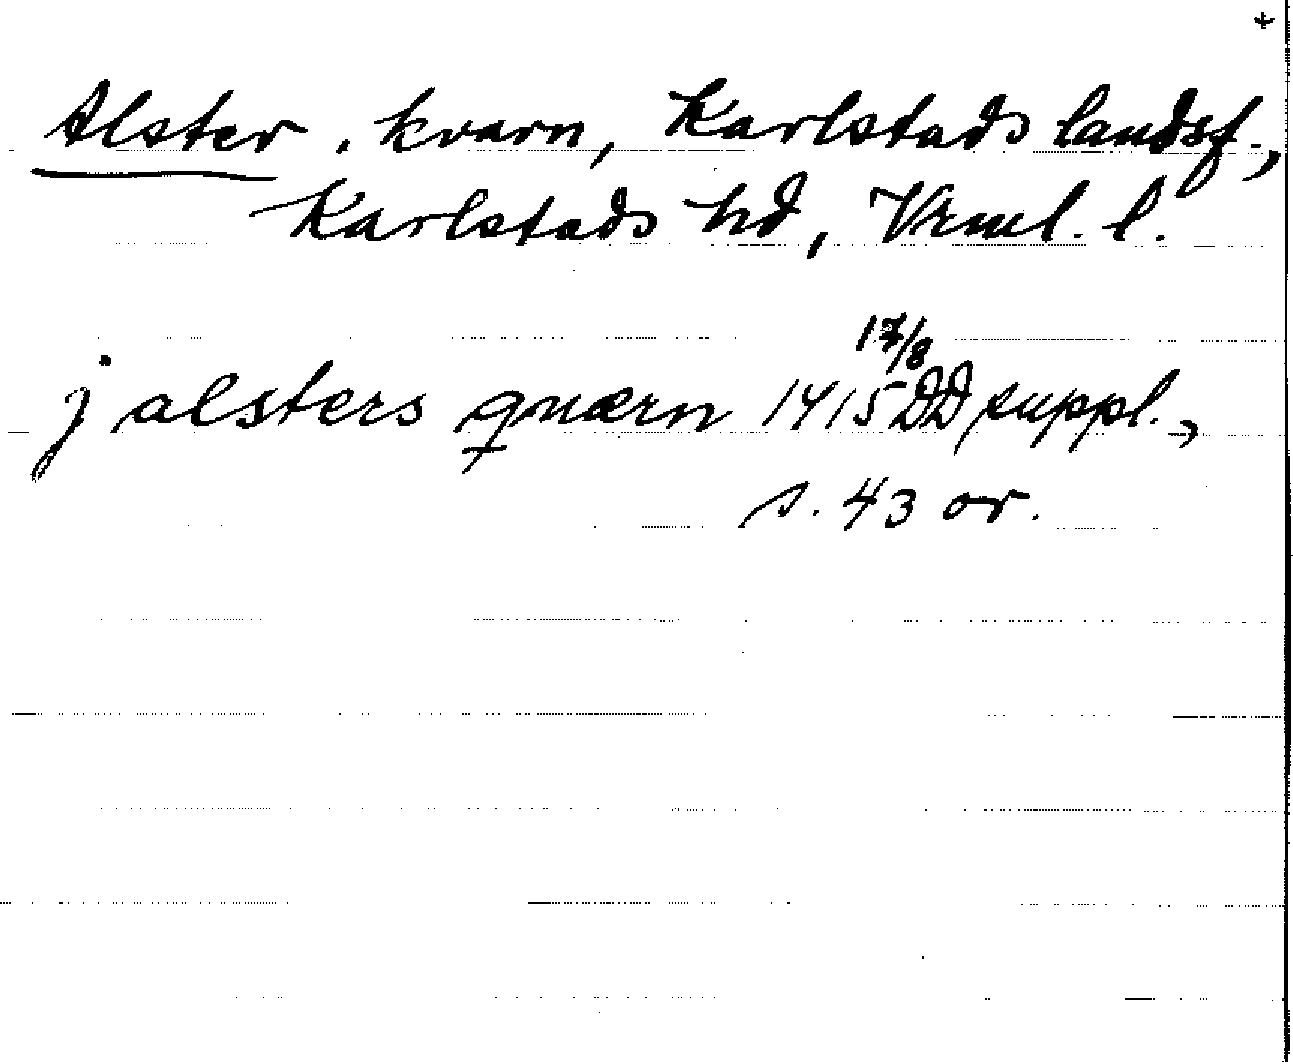 +
Alster. kvarn, Karlstads landsf.,
Karlstads hd, Vrml. l.
j alsters quærn 17/8 1415 DD suppl.,
s. 43 or.